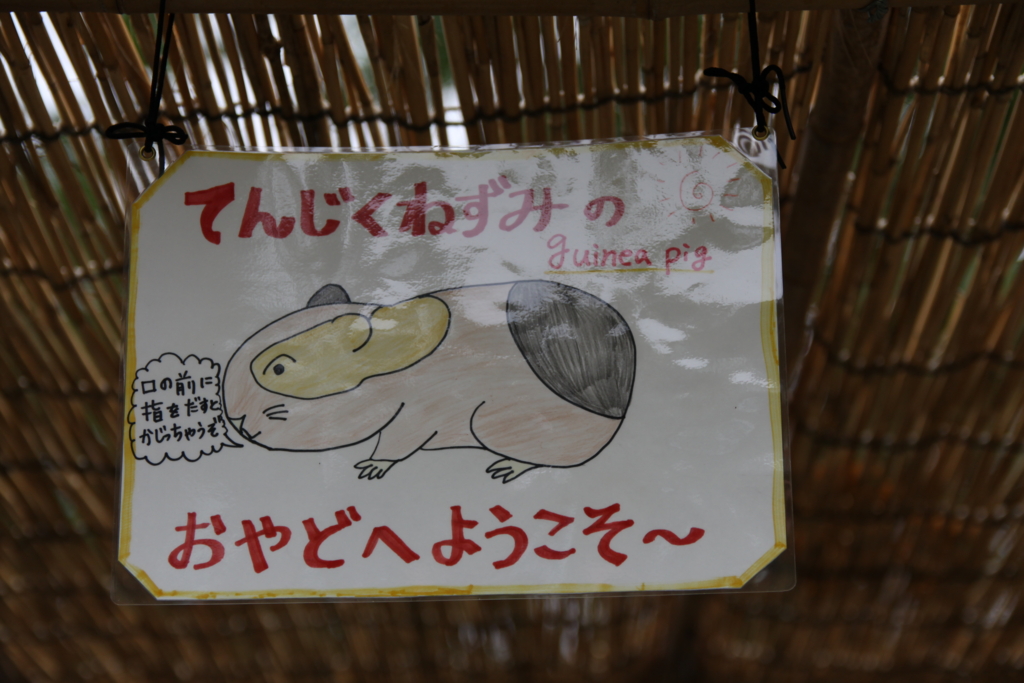 てんじくねずみの
guinea pig
口の前に
指をだすと
かじっちゃうぞ
おやどへようこそ～